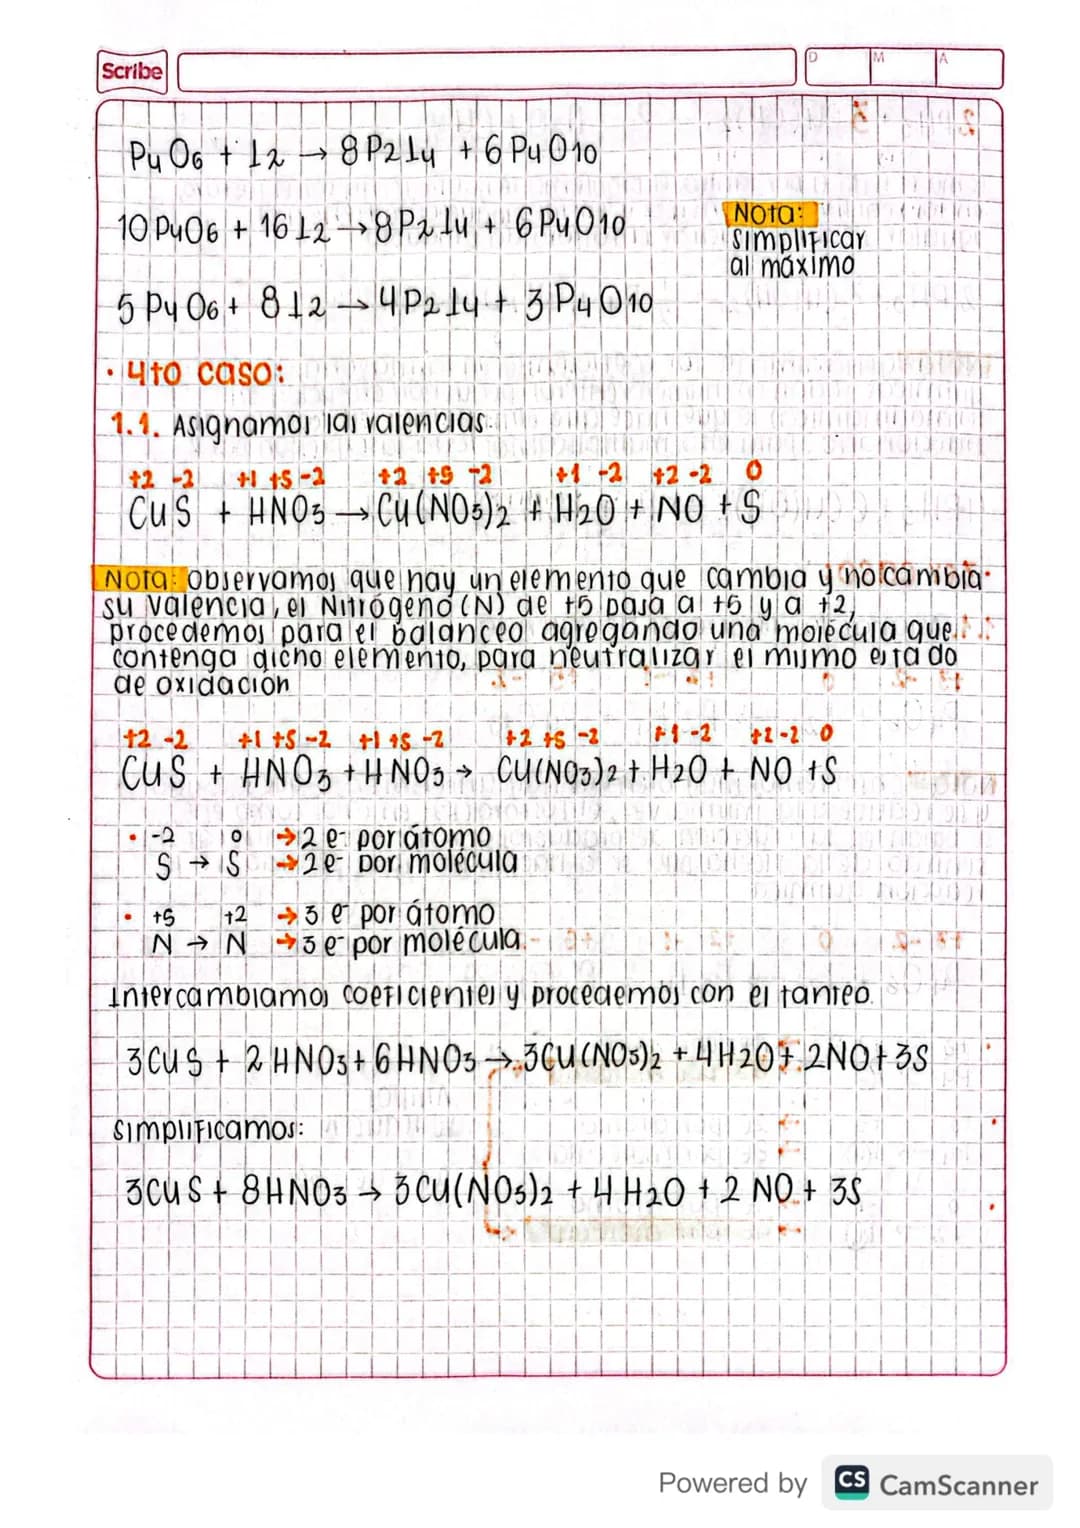 Scribe
D M A
P4O6 + I2 → 8P2I4 + 6P4O10
10P4O6 + 16I2 → 8P2I4 + 6P4O10
Nota:
simplificar
al máximo
5P4O6 + 8I2 → 4P2I4 + 3P4O10
• 4to caso:
1.1. Asignamos las valencias.
+2 -2 +1 +5 -2 +2 +5 -2 +1 -2 +2 -2 0
CuS + HNO3 → Cu(NO3)2 + H2O + NO + S
Nota: observamos que hay un elemento que cambia y no cambia
su valencia, el Nitrógeno (N) de +5 pasa a +5 y a +2,
procedemos para el balanceo agregando una molécula que
contenga dicho elemento, para neutralizar el mismo estado
de oxidación
+2 -2 +1 +5 -2 +1 +5 -2 +2 +5 -2 +1 -2 +2 -2 0
CuS + HNO3 + HNO3 → Cu(NO3)2 + H2O + NO + S
• -2 0 → 2 e- por átomo
S → S → 2e- por molécula
• +5 +2 → 3 e- por átomo
N → N → 3 e- por molécula
Intercambiamos coeficientes y procedemos con el tanteo.
3CuS + 2HNO3 + 6HNO3 → 3Cu(NO3)2 + 4H2O + 2NO + 3S
simplificamos:
3CuS + 8HNO3 → 3Cu(NO3)2 + 4H2O + 2NO + 3S
Powered by CS CamScanner